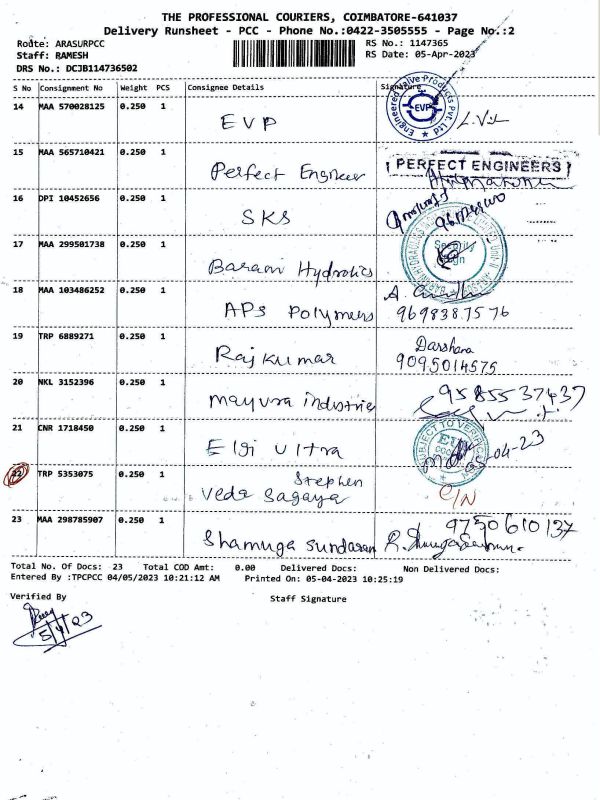 THE PROFESSIONAL COURIERS, COIMBATORE-641037
Delivery Runsheet - PCC - Phone No.:0422-3505555 - Page No.:2
Route: ARASURPCC
RS No.: 1147365
Staff: RAMESH
RS Date: 05-Apr-2023
DRS No.: DCJB114736502
S No Consignment No Weight PCS Consignee Details Signature
14 MAA 570028125 0.250 1 EVP
Engineered Valve Products Pvt. Ltd
EVP
15 MAA 565710421 0.250 1 Perfect Engineer
PERFECT ENGINEERS
16 DPI 10452656 0.250 1 SKS
17 MAA 299501738 0.250 1 Barani Hydrolics
Security
Sign
18 MAA 103486252 0.250 1 APS Polymers
A.
9698387576
19 TRP 6889271 0.250 1 Rajkumar
Darshana
9095014575
20 NKL 3152396 0.250 1 mayura industrie
9585537437
21 CNR 1718450 0.250 1 Elgi Ultra
SUBJECT TO VERIFIC
05-04-23
22 TRP 5353075 0.250 1 Stephen
Veda Sagaya
C/N
23 MAA 298785907 0.250 1 Shamuga Sundaran
9750610137
Total No. Of Docs: 23 Total COD Amt: 0.00 Delivered Docs: Non Delivered Docs:
Entered By :TPCPCC 04/05/2023 10:21:12 AM Printed On: 05-04-2023 10:25:19
Verified By
Staff Signature
5/4/23